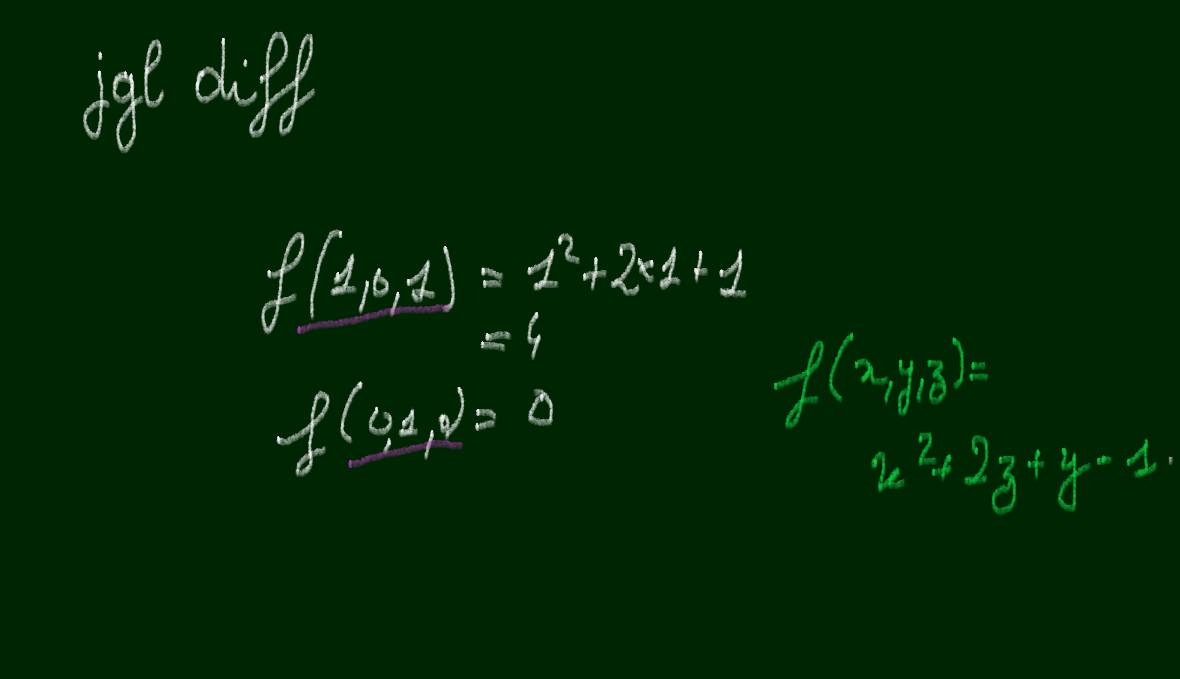 jgl diff
f(1,0,1) = 1²+2×1+1
= 4
f(0,1,0) = 0
f(x,y,z)=
x²+2z+y-1.